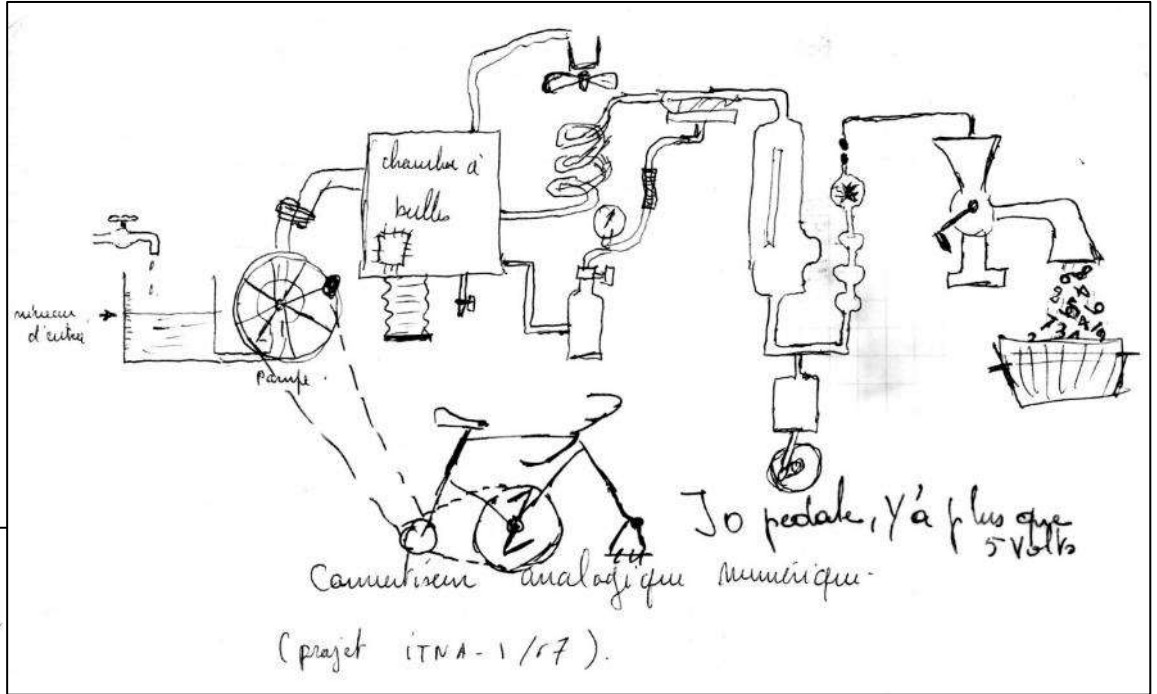 chambre à
bulles
niveau
d'entré
Pompe.
Jo pedale, y'a plus que
5 Volts
Convertisseur analogique numérique.
(projet iTNA-1/67).